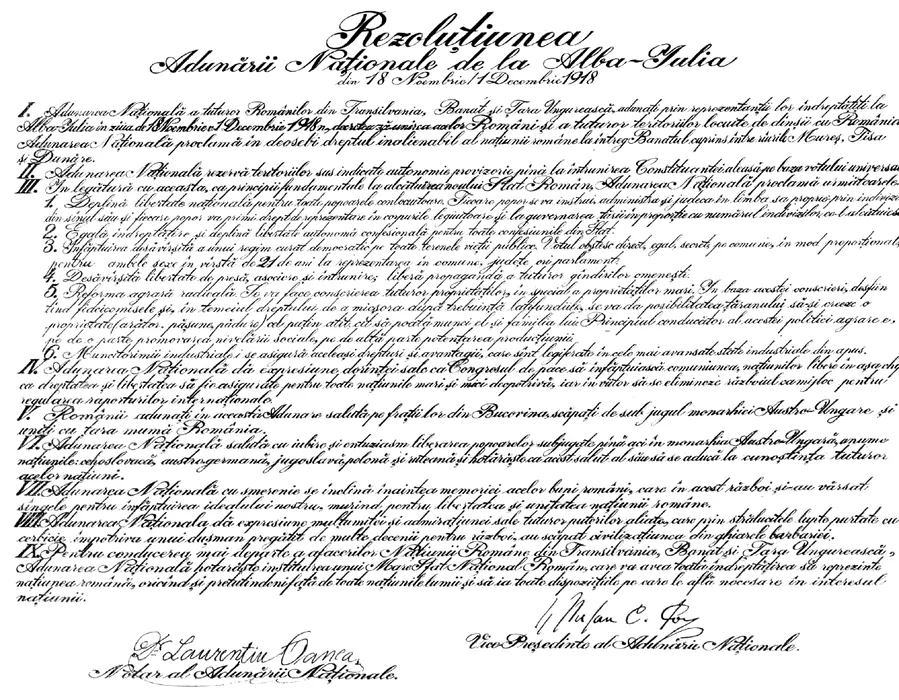 Rezoluțiunea
Adunării Naționale de la Alba-Iulia
din 18 Noembrie/1 Decembrie 1918
I. Adunarea Națională a tuturor Românilor din Transilvania, Banat și Țara Ungurească, adunați prin reprezentanții lor îndreptățiți la
Alba Iulia în ziua de 18 Noembrie/1 Decembrie 1918, decretează unirea acelor Români și a tuturor teritoriilor locuite de dînșii cu România.
Adunarea Națională proclamă în deosebi dreptul inalienabil al națiunii române la întreg Banatul cuprins între rîurile Mureș, Tisa
și Dunăre.
II. Adunarea Națională rezervă teritoriilor sus indicate autonomie provizorie pînă la întrunirea Constituantei aleasă pe baza votului universal
III. În legătură cu aceasta, ca principii fundamentale la alcătuirea noului Stat Român, Adunarea Națională proclamă următoarele:
1. Deplină libertate națională pentru toate popoarele conlocuitoare. Fiecare popor se va instrui, administra și judeca în limba sa proprie prin indivizi
din sînul său și fiecare popor va primi drept de reprezentare în corpurile legiuitoare și la guvernarea țării în proporție cu numărul indivizilor ce-l alcătuiesc
2. Egală îndreptățire și deplină libertate autonomă confesională pentru toate confesiunile din Stat.
3. Înfăptuirea desăvîrșită a unui regim curat democratic pe toate terenele vieții publice. Votul obștesc, direct, egal, secret, pe comune, în mod proporțional,
pentru ambele sexe în vîrstă de 21 de ani la reprezentarea în comune, județe ori parlament.
4. Desăvîrșită libertate de presă, asociere și întrunire; liberă propagandă a tuturor gîndirilor omenești.
5. Reforma agrară radicală. Se va face conscrierea tuturor proprietăților, în special a proprietăților mari. În baza acestei conscrieri, desfiin
țînd fideicomisele și, în temeiul dreptului de a micșora după trebuință latifundiile, se va da posibilitatea țăranului să-și creeze o
proprietate (arător, pășune, pădure) cel puțin atît cît să poată munci el și familia lui. Principiul conducător al acestei politici agrare e,
pe de o parte promovarea nivelării sociale, pe de altă parte potențarea producțiunii.
6. Muncitorimii industriale i se asigură aceleași drepturi și avantagii, care sînt legiferate în cele mai avansate state industriale din apus.
IV. Adunarea Națională dă expresiune dorinței sale ca Congresul de pace să înfăptuiască comuniunea națiunilor libere în așa chip
ca dreptatea și libertatea să fie asigurate pentru toate națiunile mari și mici deopotrivă, iar în viitor să se elimineze războiul ca mijloc pentru
regularea raporturilor internaționale.
V. Românii adunați în această Adunare salută pe frații lor din Bucovina, scăpați de sub jugul monarhiei Austro-Ungare și
uniți cu țara mumă România.
VI. Adunarea Națională salută cu iubire și entuziasm liberarea popoarelor subjugate pînă aci în monarhia Austro-Ungară, anume
națiunile: cehoslovacă, austro-germană, jugoslavă, polonă și ruteană și hotărăște ca acest salut al său să se aducă la cunoștința tuturor
acelor națiuni.
VII. Adunarea Națională cu smerenie se închină înaintea memoriei acelor bravi români, care în acest război și-au vărsat
sîngele pentru înfăptuirea idealului nostru, murind pentru libertatea și unitatea națiunii române.
VIII. Adunarea Națională dă expresiune mulțumitei și admirațiunei sale tuturor puterilor aliate, care prin strălucitele lupte purtate cu
cerbicie împotriva unui dușman pregătit de multe decenii pentru război, au scăpat civilizațiunea din ghiarele barbariei.
IX. Pentru conducerea mai departe a afacerilor Națiunii Române din Transilvania, Banat și Țara Ungurească,
Adunarea Națională hotărăște instituirea unui Mare Sfat Național Român, care va avea toată îndreptățirea să reprezinte
națiunea română, oricînd și pretutindeni față de toate națiunile lumii și să ia toate dispozițiile pe care le află necesare în interesul
națiunii.
Dr. Laurențiu Oanea
Notar al Adunării Naționale.
Vice Președinte al Adunării Naționale.